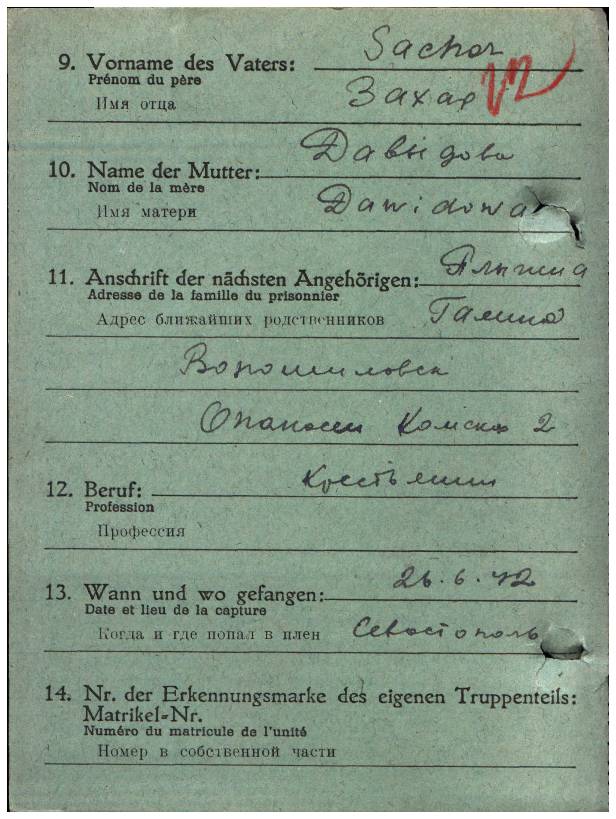 Sachar
9. Vorname des Vaters:
Prénom du père
Имя отца
Захар
Давыдова
10. Name der Mutter:
Nom de la mère
Имя матери
Dawidowa
11. Anschrift der nächsten Angehörigen:
Adresse de la famille du prisonnier
Адрес ближайших родственников
Галина
Ворошиловск
2
12. Beruf:
Крестьянин
Profession
Профессия
13. Wann und wo gefangen: 26.6.42
Date et lieu de la capture
Когда и где попал в плен Севастополь
14. Nr. der Erkennungsmarke des eigenen Truppenteils:
Matrikel-Nr.
Numéro du matricule de l'unité
Номер в собственной части